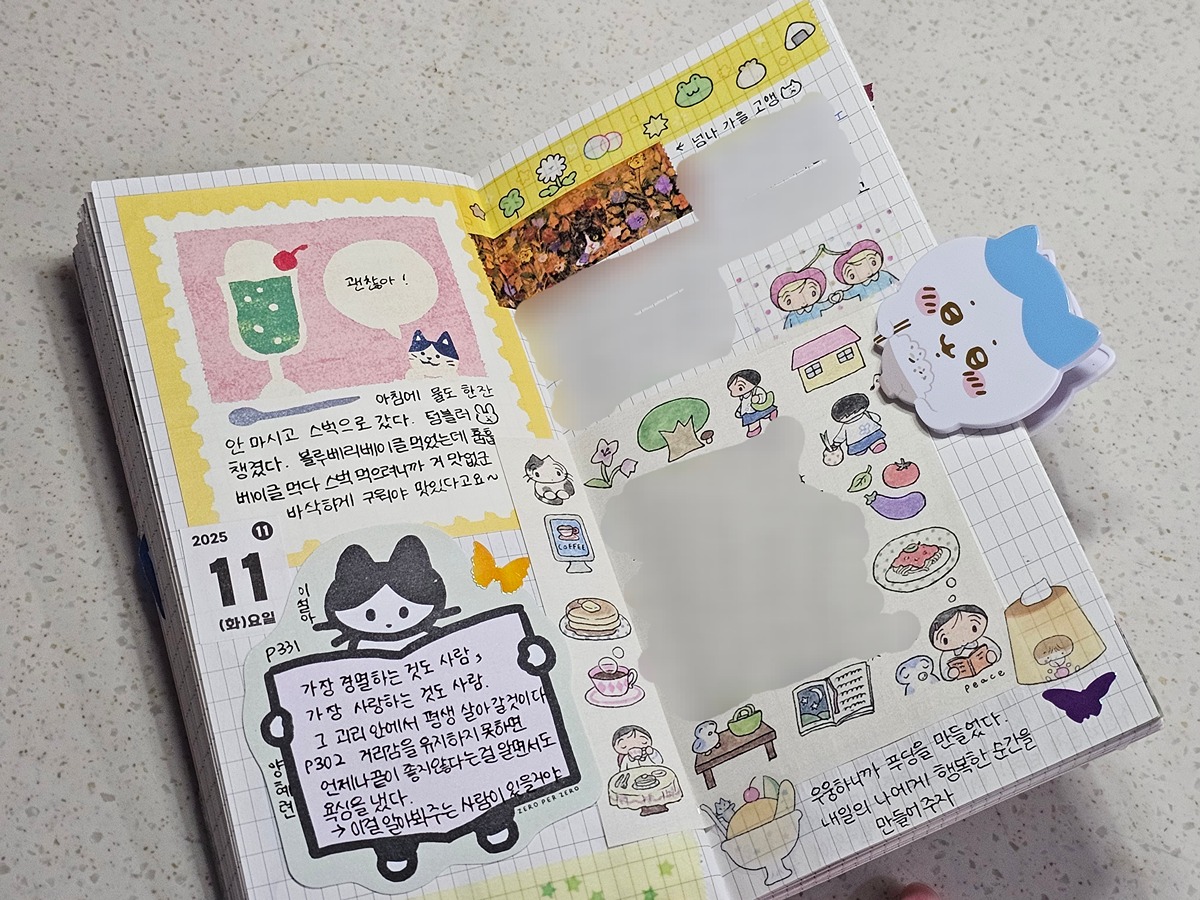 괜찮아!
아침에 물도 한잔
안 마시고 스벅으로 갔다. 텀블러
챙겼다. 블루베리베이글 먹었는데 퐁퐁
베이글 먹다 스벅 먹으려니까 거 맛없군
바삭하게 구워야 맛있다고요~
2025 11
11
(화)요일
이철아
P331
가장 경멸하는 것도 사람,
가장 사랑하는 것도 사람.
그 괴리 안에서 평생 살아갈것이다
양혜련
P302 거리감을 유지하지 못하면
언제나끝이 좋지않다는걸 알면서도
욕심을 냈다.
→ 이걸 알아봐주는 사람이 있을거야
ZERO PER ZERO
COFFEE
← 넘나 가을 고앵
고
peace
우웅하니까 푸딩을 만들었다.
내일의 나에게 행복한 순간을
만들어주자